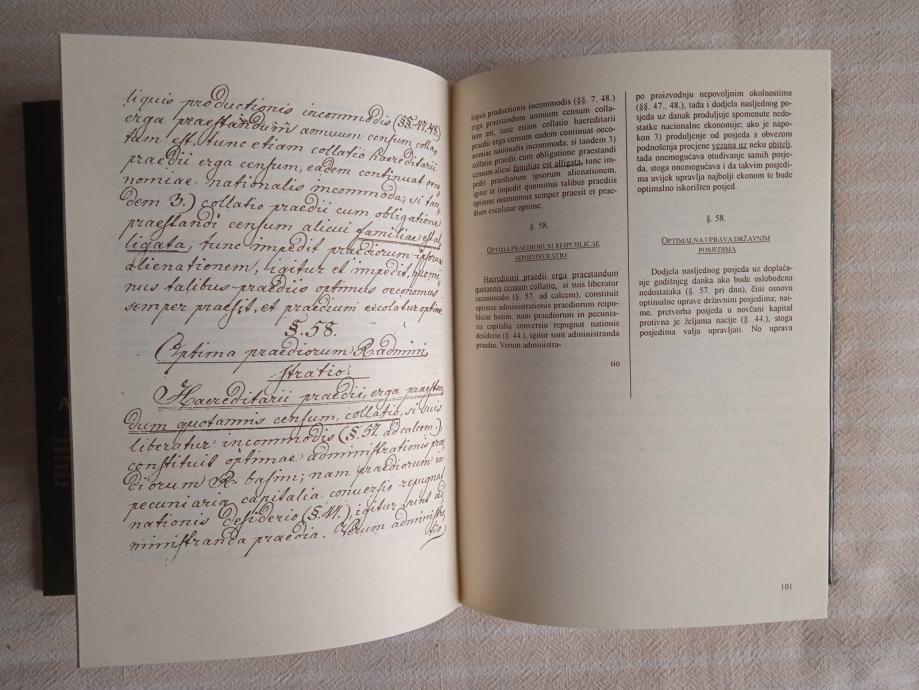 liquis productionis incommodis (§§. 47. 48.)
erga praestandum annuum censum colla-
tum est, tunc etiam collatio haereditarii
praedii erga censum, eadem continuat oeco
nomiae nationalis incommoda; si tan,
dem 3.) collatio praedii cum obligatione
praestandi censum alicui familiae est al
ligata; tunc impedit praediorum ipsorum
alienationem, igitur et impedit, quomi
nus talibus praediis optimus oeconomus
semper praesit, et praedium excolatur optime.
§. 58.
Optima praediorum R. admini,
stratio.
Haereditarii praedii, erga praestan,
dum quotannis censum, collatio, si suis
liberatur incommodis (§. 57. ad calcem.)
constituit optimae administrationis prae
diorum R. basim; nam praediorum in
pecuniaria capitalia conversio repugnat
nationis desiderio (§. 44.), igitur sunt ad
ministranda praedia. Verum administra
tio
liquis productionis incommodis (§§. 7. 48.)
erga praestandum annuum censum colla-
tum est, tunc etiam collatio haereditarii
praedii erga censum eadem continuat oeco-
nomiae nationalis incommoda; si tandem 3)
collatio praedii cum obligatione praestandi
censum alicui familiae est alligata, tunc im-
pedit praediorum ipsorum alienationem,
igitur et impedit quominus talibus praediis
optimus oeconomus semper praesit et prae-
dium excolatur optime.
§. 58.
OPTIMA PRAEDIORUM REIPUBLICAE
ADMINISTRATIO
Haereditarii praedii erga praestandum
quotannis censum collatio, si suis liberatur
incommodis (§. 57. ad calcem), constituit
optimae administrationis praediorum reipu-
blicae basim; nam praediorum in pecunia-
ria capitalia conversio repugnat nationis
desiderio (§. 44.), igitur sunt administranda
praedia. Verum administra-
tio
po proizvodnju nepovoljnim okolnostima
(§§. 47., 48.), tada i dodjela nasljednog po-
sjeda uz danak produljuje spomenute nedo-
statke nacionalne ekonomije; ako je napo-
kon 3) produljenje od posjeda s obvezom
podnošenja procjene vezana uz neku obitelj,
tada onemogućava otuđivanje samih posje-
da, stoga onemogućava i da takvim posjedi-
ma uvijek upravlja najbolji ekonom te bude
optimalno iskorišten posjed.
§. 58.
OPTIMALNA UPRAVA DRŽAVNIM
POSJEDIMA
Dodjela nasljednog posjeda uz doplaća-
nje godišnjeg danka ako bude oslobođena
nedostataka (§. 57. pri dnu), čini osnovu
optimalne uprave državnim posjedima; nai-
me, pretvorba posjeda u novčani kapital
protivna je željama nacije (§. 44.), stoga
posjedima valja upravljati. No uprava
101